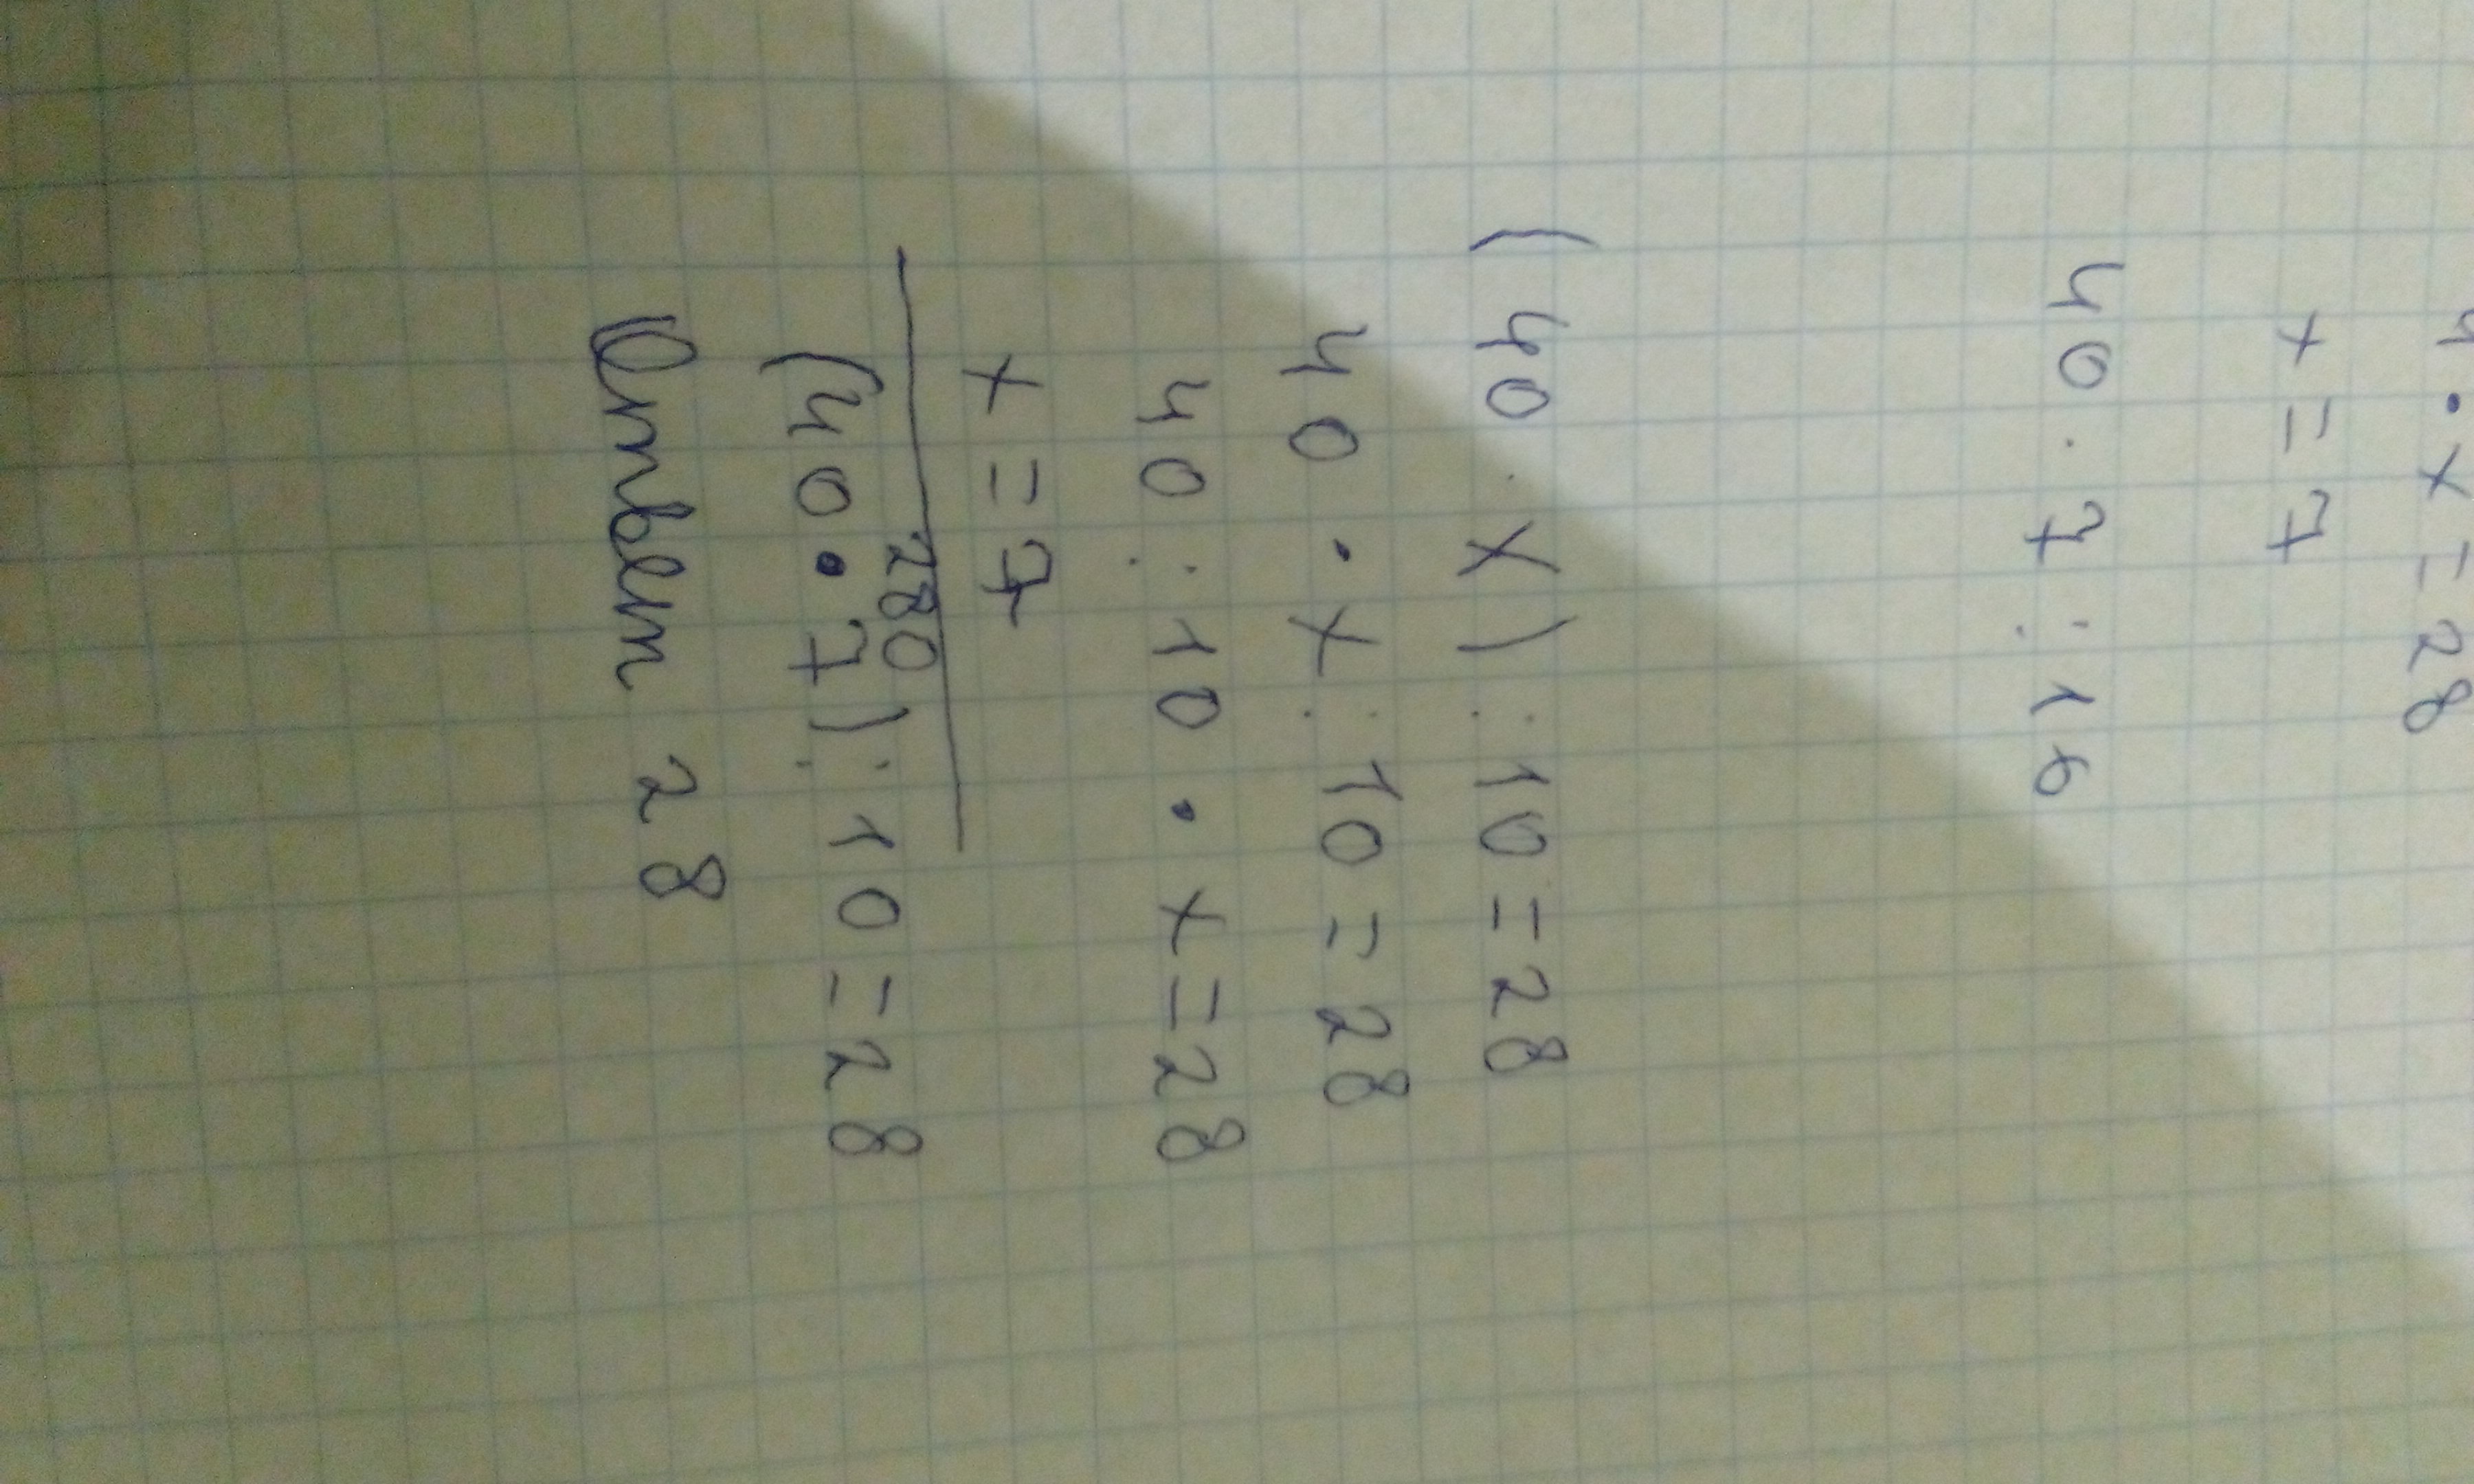 4 · x = 28
x = 7
40 · 7 : 16
(40 · x) : 10 = 28
40 · x : 10 = 28
40 : 10 · x = 28
x = 7
280
(40 · 7) : 10 = 28
Ответ 28